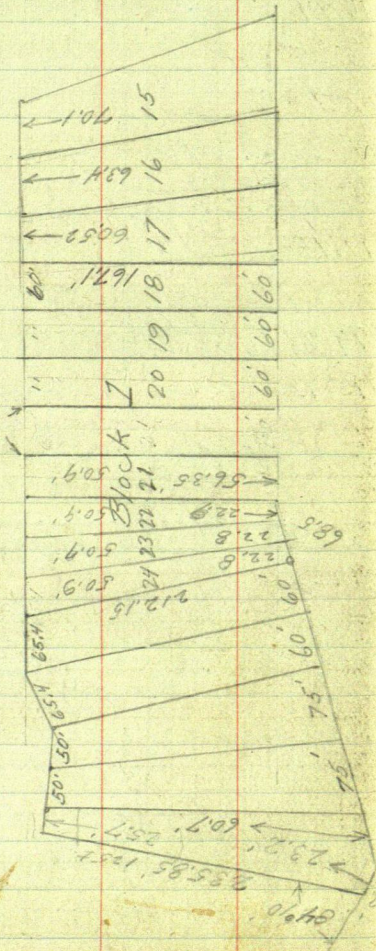 70.1 15
63.4 16
60.52 17
60' 167.1' 18 60'
" 19 60'
" 20 60'
Block I
50.9' 21 56.35
50.9' 22 22.9
50.9' 23 22.8
50.9' 24 22.8
68.5
212.15
65.4 60'
65.4 60'
50' 75'
50' 75'
25.7' 60.7' 23.2'
235.85'